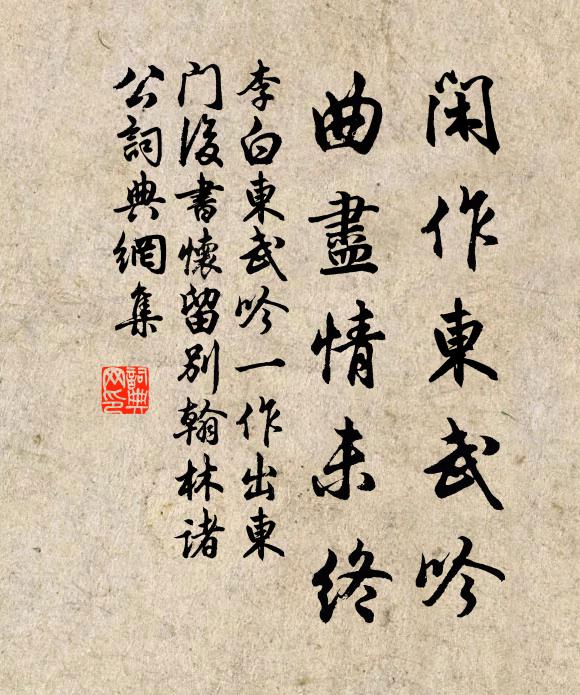 閑作東武吟
曲盡情未終
李白東武吟一作出東
门後書懷留别翰林诸
公詞典網集
詞典网印